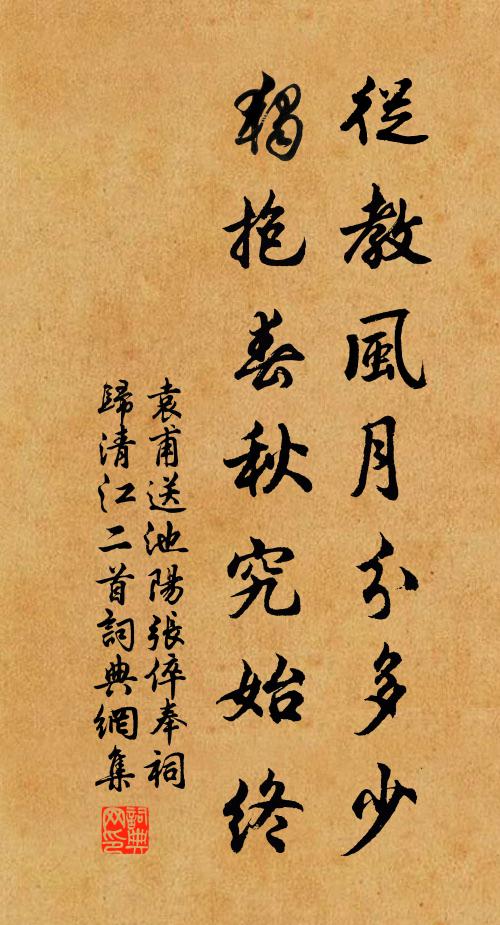 從教風月分多少
獨抱春秋究始終
袁甫送池陽張倅奉祠
歸清江二首詞典網集
詞典网印